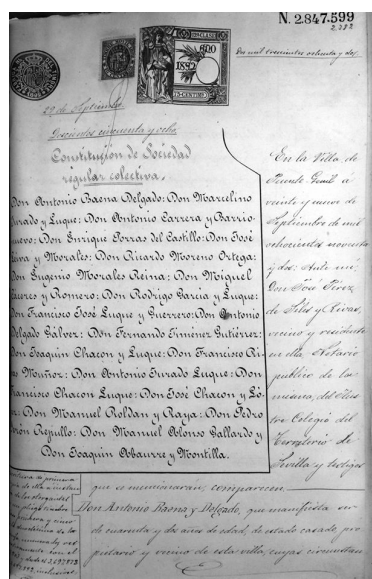 N. 2.847.599
2,382
Dos mil trescientos ochenta y dos.
12ª CLASE
1892
75 CENTIMOS
29 de Septiembre
Doscientos cincuenta y ocho.
Constitución de Sociedad
regular colectiva.
Don Antonio Baena Delgado: Don Marcelino
Jurado y Luque: Don Antonio Carrera y Barrio-
nuevo: Don Enrique Porras del Castillo: Don José
y Morales: Don Ricardo Moreno Ortega:
Don Eugenio Morales Reina: Don Miguel
y Romero: Don Rodrigo Garcia y Luque:
Don Francisco José Luque y Guerrero: Don Antonio
Delgado Galvez: Don Fernando Jiménez Gutiérrez:
Don Joaquin Chacon y Luque: Don Francisco Ri-
vas Muñoz: Don Antonio Jurado Luque: Don
Francisco Chacon Luque: Don José Chacon y Ló-
Don Manuel Roldan y Raya: Don Pedro
Repullo: Don Manuel Alonso Gallardo y
Don Joaquin Abaurre y Montilla.
En la Villa de
Puente Genil á
veinte y nueve de
Septiembre de mil
ochocientos noventa
y dos: Ante mí
Don José Pérez
de Siles y Rivas,
vecino y residente
en ella, Notario
público de la
misma, del Ilus-
tre Colegio del
Territorio de
Sevilla y testigos
que se mencionarán, comparecen
Don Antonio Baena y Delgado, que manifiesta ser
de cuarenta y dos años de edad, de estado casado, pro-
pietario y vecino de esta villa, cuyas circunstan